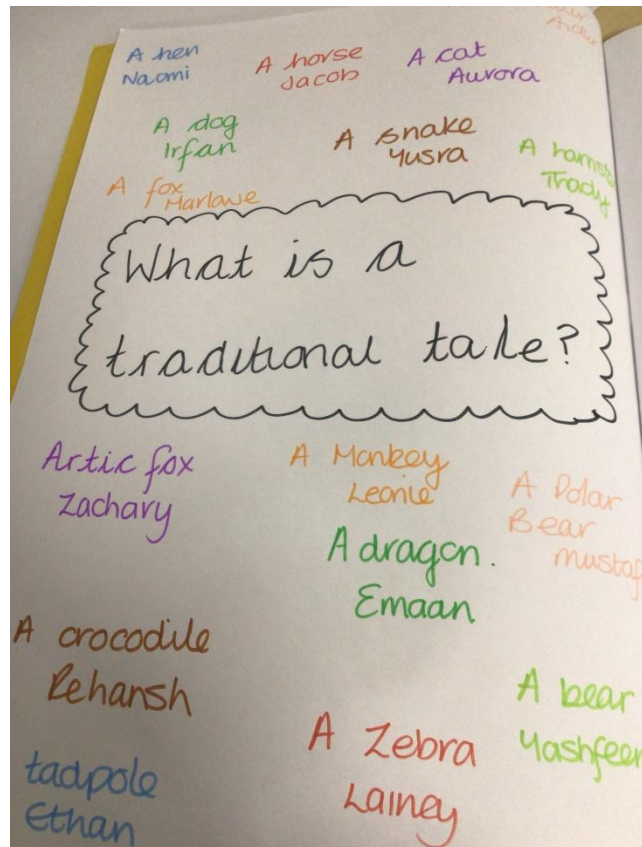 A hen
Naomi
A horse
Jacob
A cat
Aurora
A dog
Irfan
A snake
Yusra
A
Thady
A fox
Marlowe
What is a
traditional tale?
Artic fox
Zachary
A Monkey
Leonie
A Polar
Bear
A dragon.
Emaan
A crocodile
Rehansh
A bear
Yashfeen
A Zebra
Lainey
tadpole
Ethan